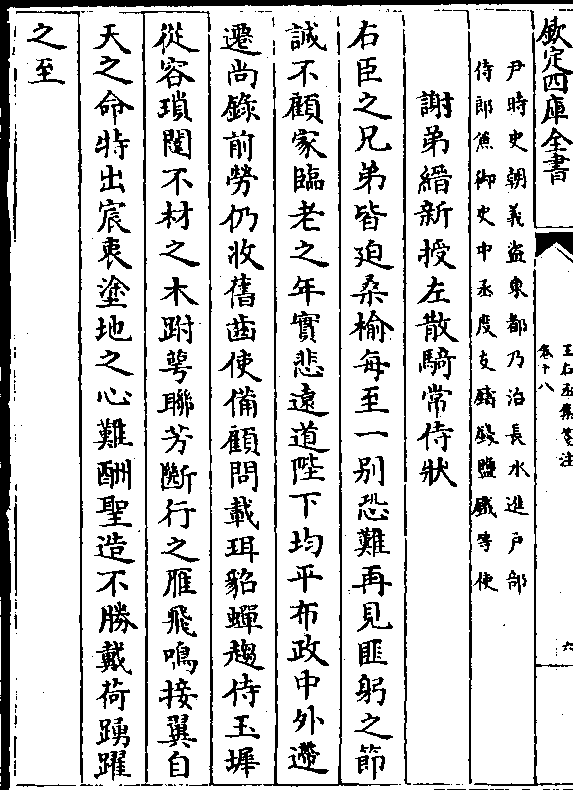 欽定四庫全書
王右丞集箋注
卷十八
六
尹時史朝義盜東都乃治長水進戶部
侍郎兼御史中丞度支鑄錢鹽鐵等使
謝弟縉新授左散騎常侍狀
右臣之兄弟皆迫桑榆每至一別恐難再見匪躬之節
誠不顧家臨老之年實悲遠道陛下均平布政中外遷
遷尚錄前勞仍收舊齒使備顧問載珥貂蟬趨侍玉墀
從容瑣闥不材之木跗萼聯芳斷行之雁飛鳴接翼自
天之命特出宸衷塗地之心難酬聖造不勝戴荷踴躍
之至